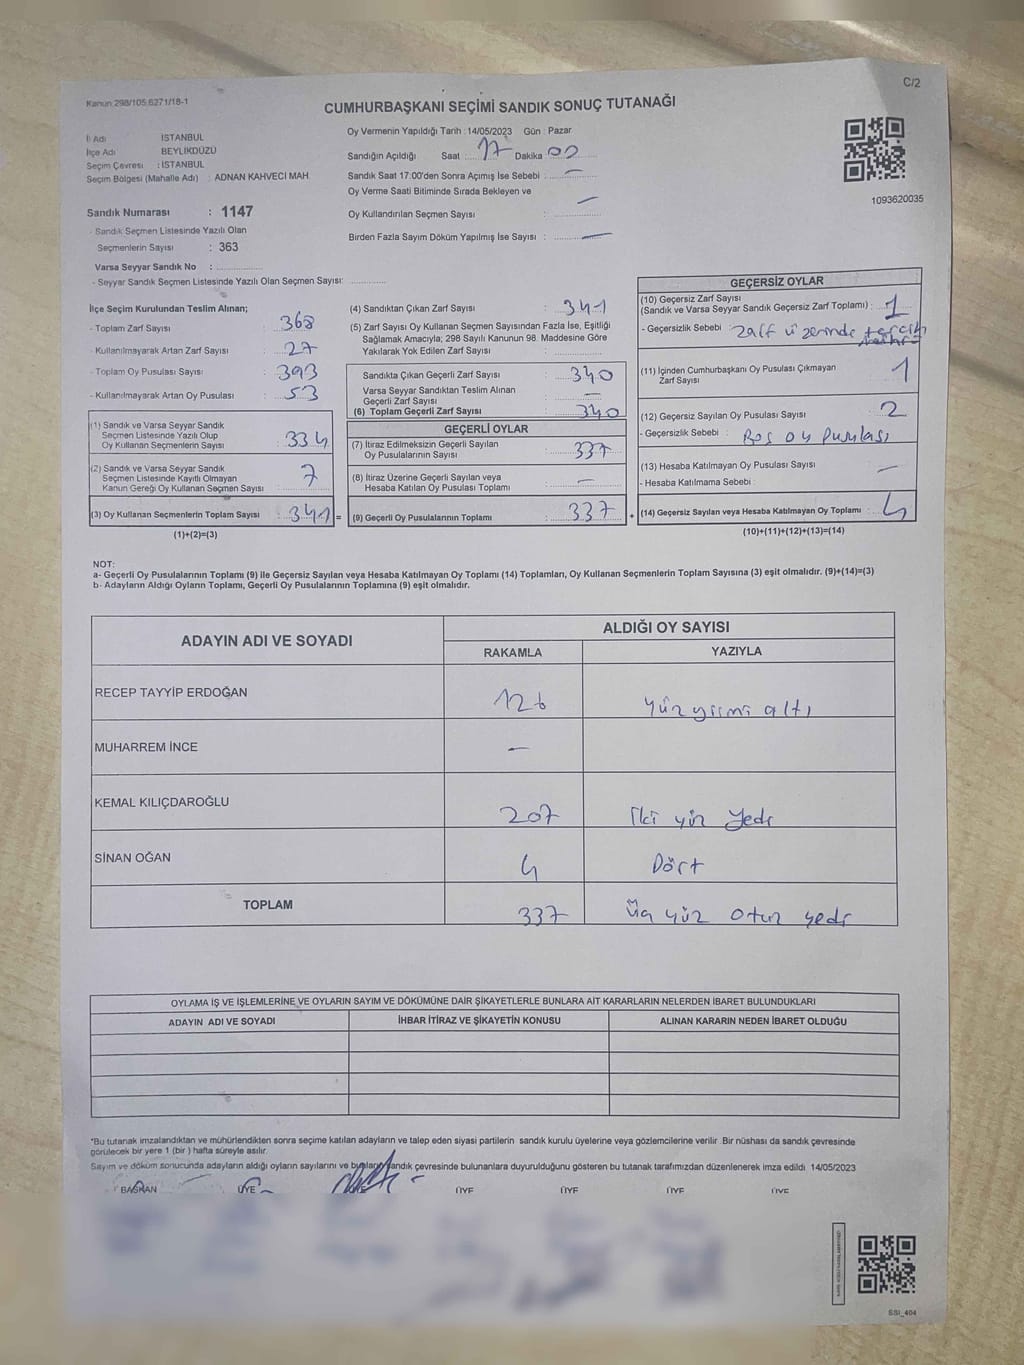 Kanun 298/105,6271/18-1
C/2
CUMHURBAŞKANI SEÇİMİ SANDIK SONUÇ TUTANAĞI
İl Adı İSTANBUL
İlçe Adı BEYLİKDÜZÜ
Seçim Çevresi : İSTANBUL
Seçim Bölgesi (Mahalle Adı) : ADNAN KAHVECİ MAH
Sandık Numarası : 1147
- Sandık Seçmen Listesinde Yazılı Olan
Seçmenlerin Sayısı : 363
Varsa Seyyar Sandık No :
- Seyyar Sandık Seçmen Listesinde Yazılı Olan Seçmen Sayısı:
Oy Vermenin Yapıldığı Tarih : 14/05/2023 Gün : Pazar
Sandığın Açıldığı Saat : 17 Dakika 00
Sandık Saat 17:00'den Sonra Açımış İse Sebebi : —
Oy Verme Saati Bitiminde Sırada Bekleyen ve
Oy Kullandırılan Seçmen Sayısı : —
Birden Fazla Sayım Döküm Yapılmış İse Sayısı : —
1093620035
İlçe Seçim Kurulundan Teslim Alınan;
- Toplam Zarf Sayısı : 368
- Kullanılmayarak Artan Zarf Sayısı : 27
- Toplam Oy Pusulası Sayısı : 393
- Kullanılmayarak Artan Oy Pusulası : 53
(1) Sandık ve Varsa Seyyar Sandık
Seçmen Listesinde Yazılı Olup
Oy Kullanan Seçmenlerin Sayısı : 334
(2) Sandık ve Varsa Seyyar Sandık
Seçmen Listesinde Kayıtlı Olmayan
Kanun Gereği Oy Kullanan Seçmen Sayısı : 7
(3) Oy Kullanan Seçmenlerin Toplam Sayısı : 341 =
(1)+(2)=(3)
(4) Sandıktan Çıkan Zarf Sayısı : 341
(5) Zarf Sayısı Oy Kullanan Seçmen Sayısından Fazla İse, Eşitliği
Sağlamak Amacıyla; 298 Sayılı Kanunun 98. Maddesine Göre
Yakılarak Yok Edilen Zarf Sayısı :
Sandıkta Çıkan Geçerli Zarf Sayısı : 340
Varsa Seyyar Sandıktan Teslim Alınan
Geçerli Zarf Sayısı : —
(6) Toplam Geçerli Zarf Sayısı : 340
GEÇERLİ OYLAR
(7) İtiraz Edilmeksizin Geçerli Sayılan
Oy Pusulalarının Sayısı : 337
(8) İtiraz Üzerine Geçerli Sayılan veya
Hesaba Katılan Oy Pusulası Toplamı : —
(9) Geçerli Oy Pusulalarının Toplamı : 337 +
GEÇERSİZ OYLAR
(10) Geçersiz Zarf Sayısı
(Sandık ve Varsa Seyyar Sandık Geçersiz Zarf Toplamı) : 1
- Geçersizlik Sebebi : Zarf üzerinde tercih
(11) İçinden Cumhurbaşkanı Oy Pusulası Çıkmayan
Zarf Sayısı 1
(12) Geçersiz Sayılan Oy Pusulası Sayısı 2
- Geçersizlik Sebebi : Boş oy Pusulası
(13) Hesaba Katılmayan Oy Pusulası Sayısı —
- Hesaba Katılmama Sebebi :
(14) Geçersiz Sayılan veya Hesaba Katılmayan Oy Toplamı : 4
(10)+(11)+(12)+(13)=(14)
NOT:
a- Geçerli Oy Pusulalarının Toplamı (9) ile Geçersiz Sayılan veya Hesaba Katılmayan Oy Toplamı (14) Toplamları, Oy Kullanan Seçmenlerin Toplam Sayısına (3) eşit olmalıdır. (9)+(14)=(3)
b- Adayların Aldığı Oyların Toplamı, Geçerli Oy Pusulalarının Toplamına (9) eşit olmalıdır.
ADAYIN ADI VE SOYADI
ALDIĞI OY SAYISI
RAKAMLA YAZIYLA
RECEP TAYYİP ERDOĞAN 126 yüz yirmi altı
MUHARREM İNCE —
KEMAL KILIÇDAROĞLU 207 İki yüz Yedi
SİNAN OĞAN 4 Dört
TOPLAM 337 Üç yüz otuz yedi
OYLAMA İŞ VE İŞLEMLERİNE VE OYLARIN SAYIM VE DÖKÜMÜNE DAİR ŞİKAYETLERLE BUNLARA AİT KARARLARIN NELERDEN İBARET BULUNDUKLARI
ADAYIN ADI VE SOYADI İHBAR İTİRAZ VE ŞİKAYETİN KONUSU ALINAN KARARIN NEDEN İBARET OLDUĞU
"Bu tutanak imzalandıktan ve mühürlendikten sonra seçime katılan adayların ve talep eden siyasi partilerin sandık kurulu üyelerine veya gözlemcilerine verilir. Bir nüshası da sandık çevresinde
görülecek bir yere 1 (bir ) hafta süreyle asılır.
Sayım ve döküm sonucunda adayların aldığı oyların sayılarını ve bunların sandık çevresinde bulunanlara duyurulduğunu gösteren bu tutanak tarafımızdan düzenlenerek imza edildi 14/05/2023
BAŞKAN ÜYE ÜYE ÜYE ÜYE ÜYE
SSİ_404